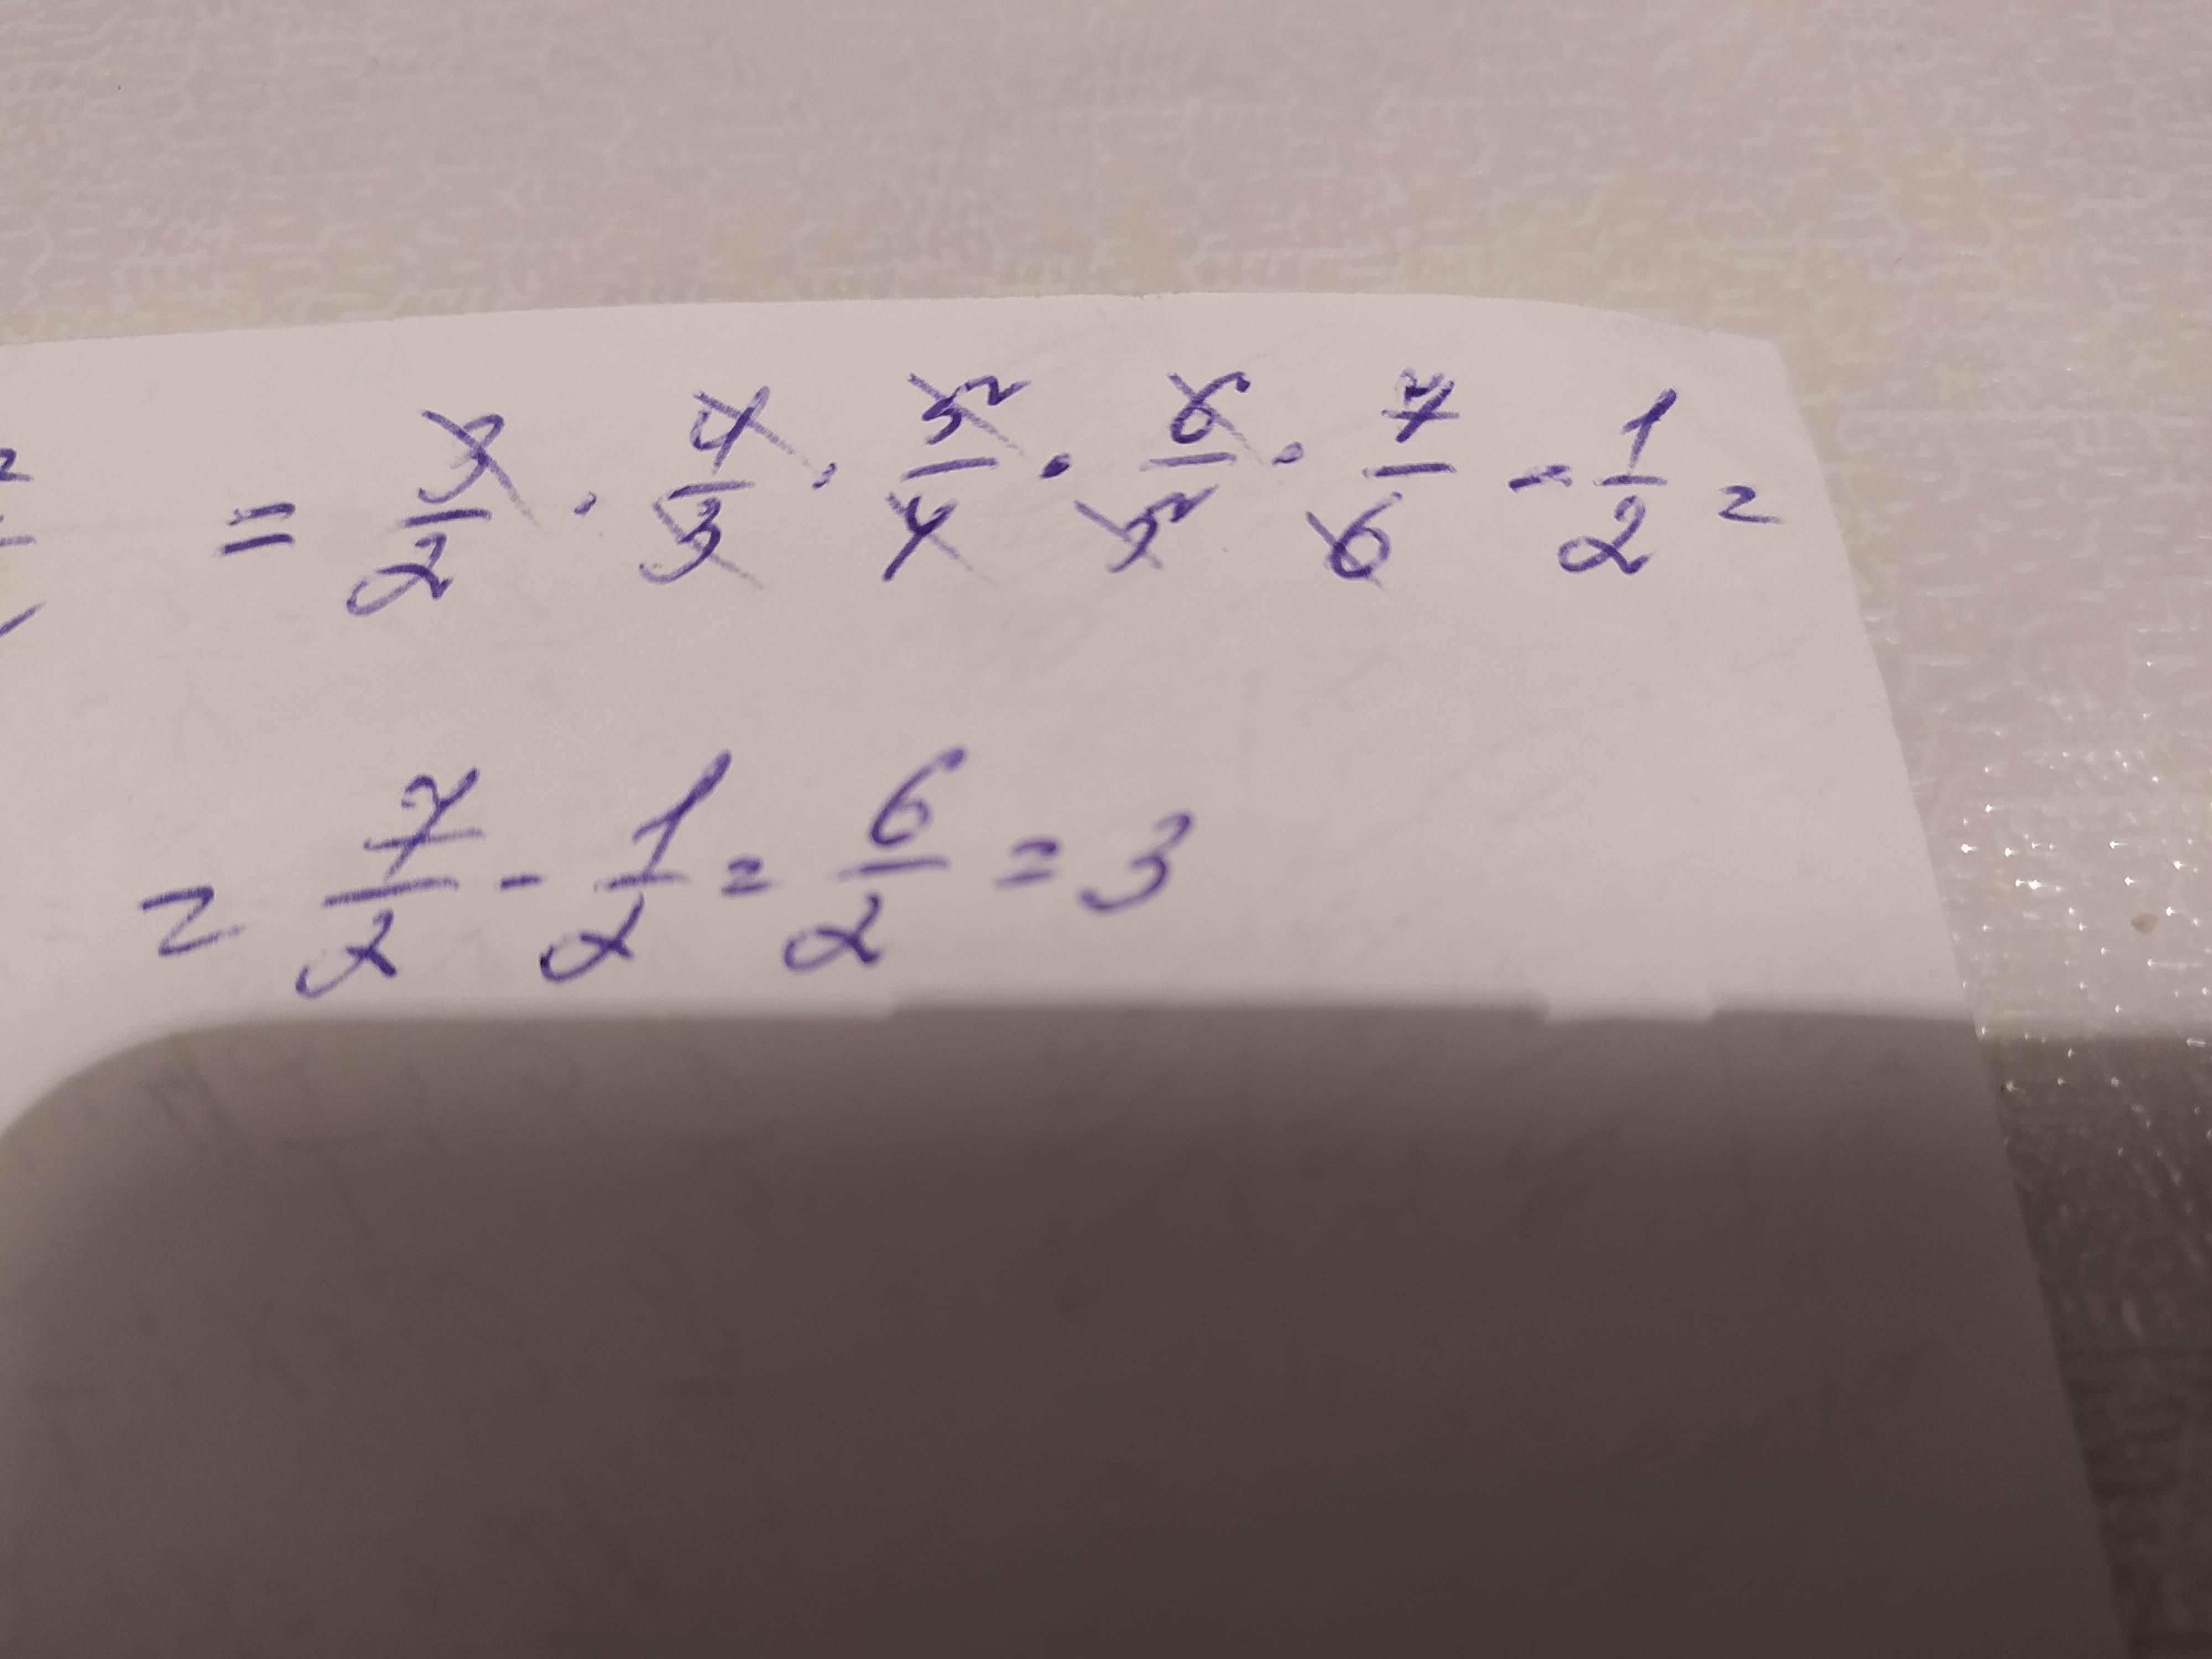 = 3/2 · 4/3 · 5/4 · 6/5 · 7/6 - 1/2 =
= 7/2 - 1/2 = 6/2 = 3